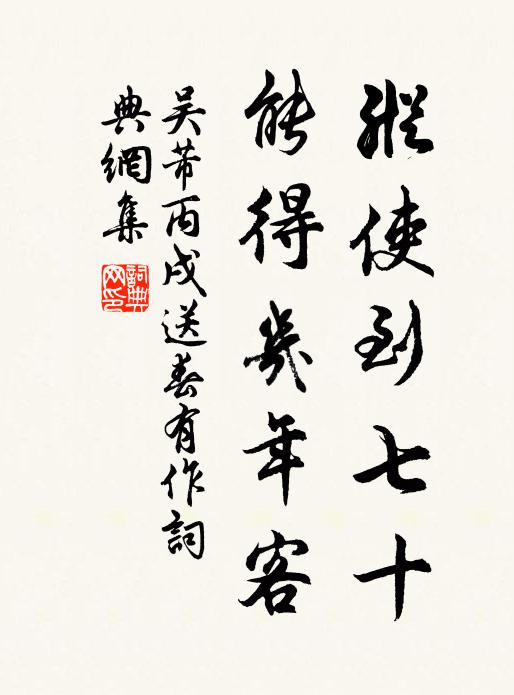 縱使到七十
能得幾年客
吳芾丙戌送春有作詞
典網集
詞典網印